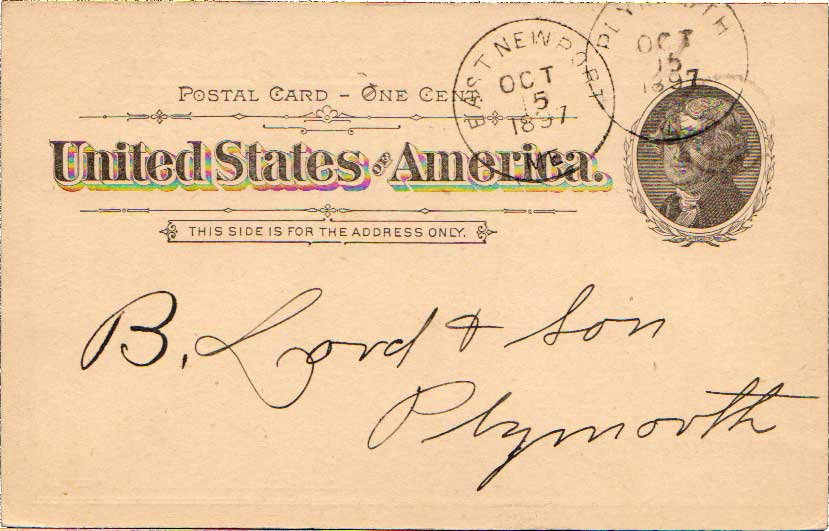 POSTAL CARD – ONE CENT
United States OF America.
THIS SIDE IS FOR THE ADDRESS ONLY.
EAST NEWPORT
OCT
15
1897
ME.
PLYMOUTH
OCT
15
1897
B. Lord & Son
Plymouth